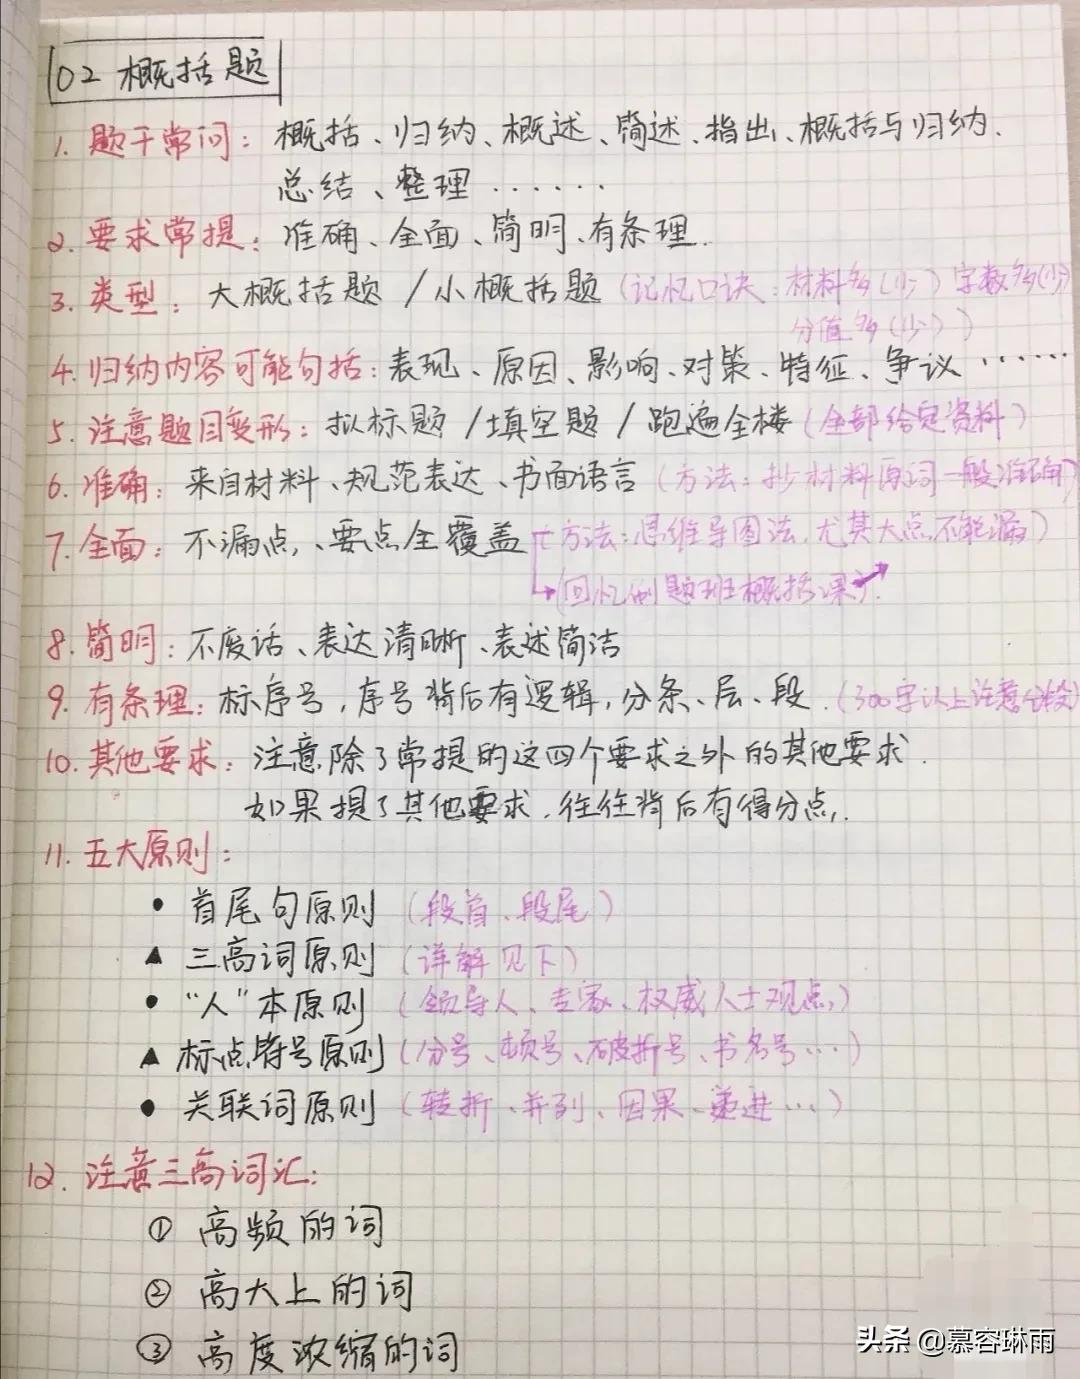 02 概括题
1. 题干常问：概括、归纳、概述、简述、指出、概括与归纳、
总结、整理……
2. 要求常提：准确、全面、简明、有条理.
3. 类型：大概括题/小概括题（记忆口诀：材料多(少)字数多(少)
分值多(少)）
4. 归纳内容可能包括：表现、原因、影响、对策、特征、争议……
5. 注意题目变形：拟标题/填空题/跑遍全楼（全部给定资料）
6. 准确：来自材料、规范表达、书面语言（方法：抄材料原词一般准确）
7. 全面：不漏点、要点全覆盖（方法：思维导图法,尤其大点不能漏）
（回忆例题班概括课）.
8. 简明：不废话、表达清晰、表述简洁
9. 有条理：标序号，序号背后有逻辑，分条、层、段.（300字以上注意分段）
10. 其他要求：注意除了常提的这四个要求之外的其他要求.
如果提了其他要求，往往背后有得分点.
11. 五大原则：
• 首尾句原则（段首、段尾）
▲ 三高词原则（详解见下）
• “人”本原则（领导人、专家、权威人士观点）
▲ 标点符号原则（分号、顿号、破折号、书名号…）
• 关联词原则（转折、并列、因果、递进…）
12. 注意三高词汇：
① 高频的词
② 高大上的词
③ 高度浓缩的词
头条 @慕容琳雨